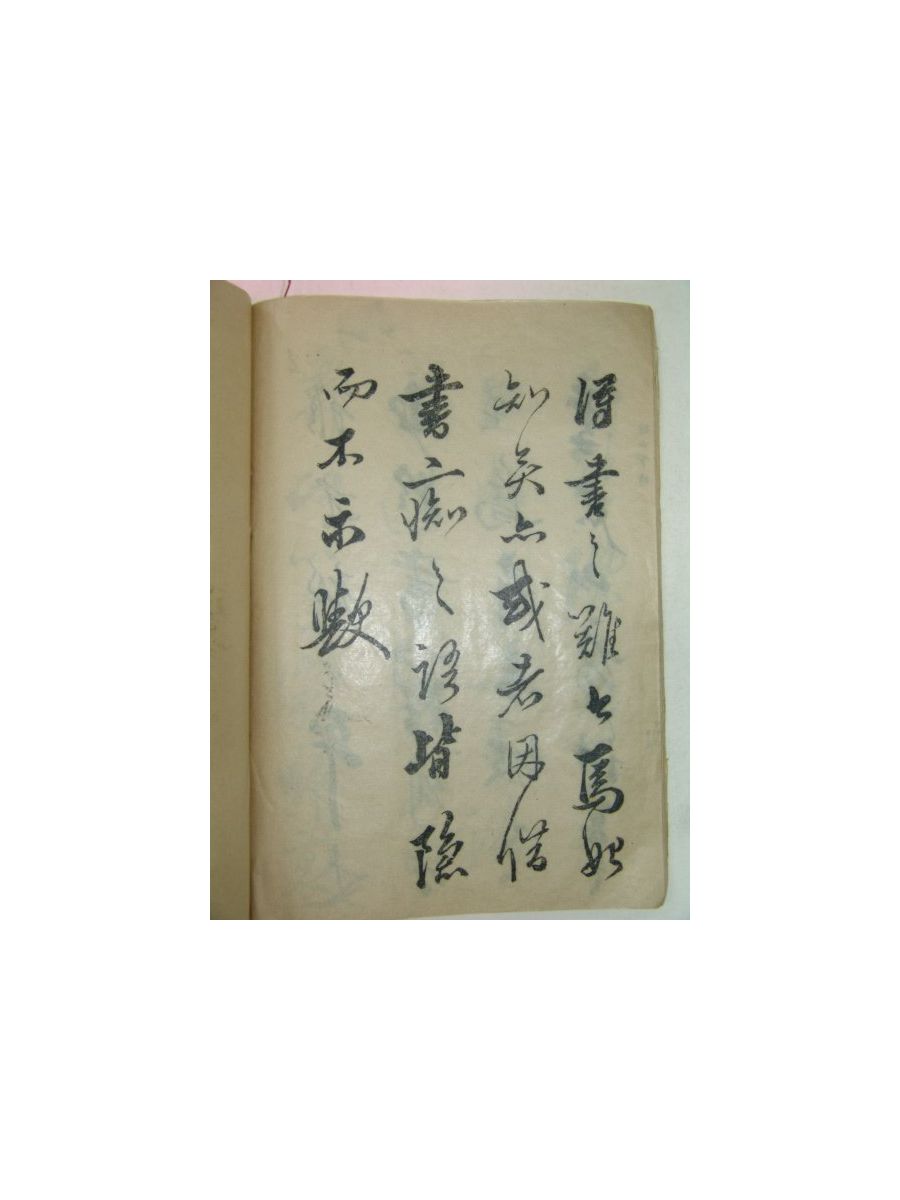 得書之難也焉能
知矣亦或者因借
書一痴之語皆隱
而不示歟